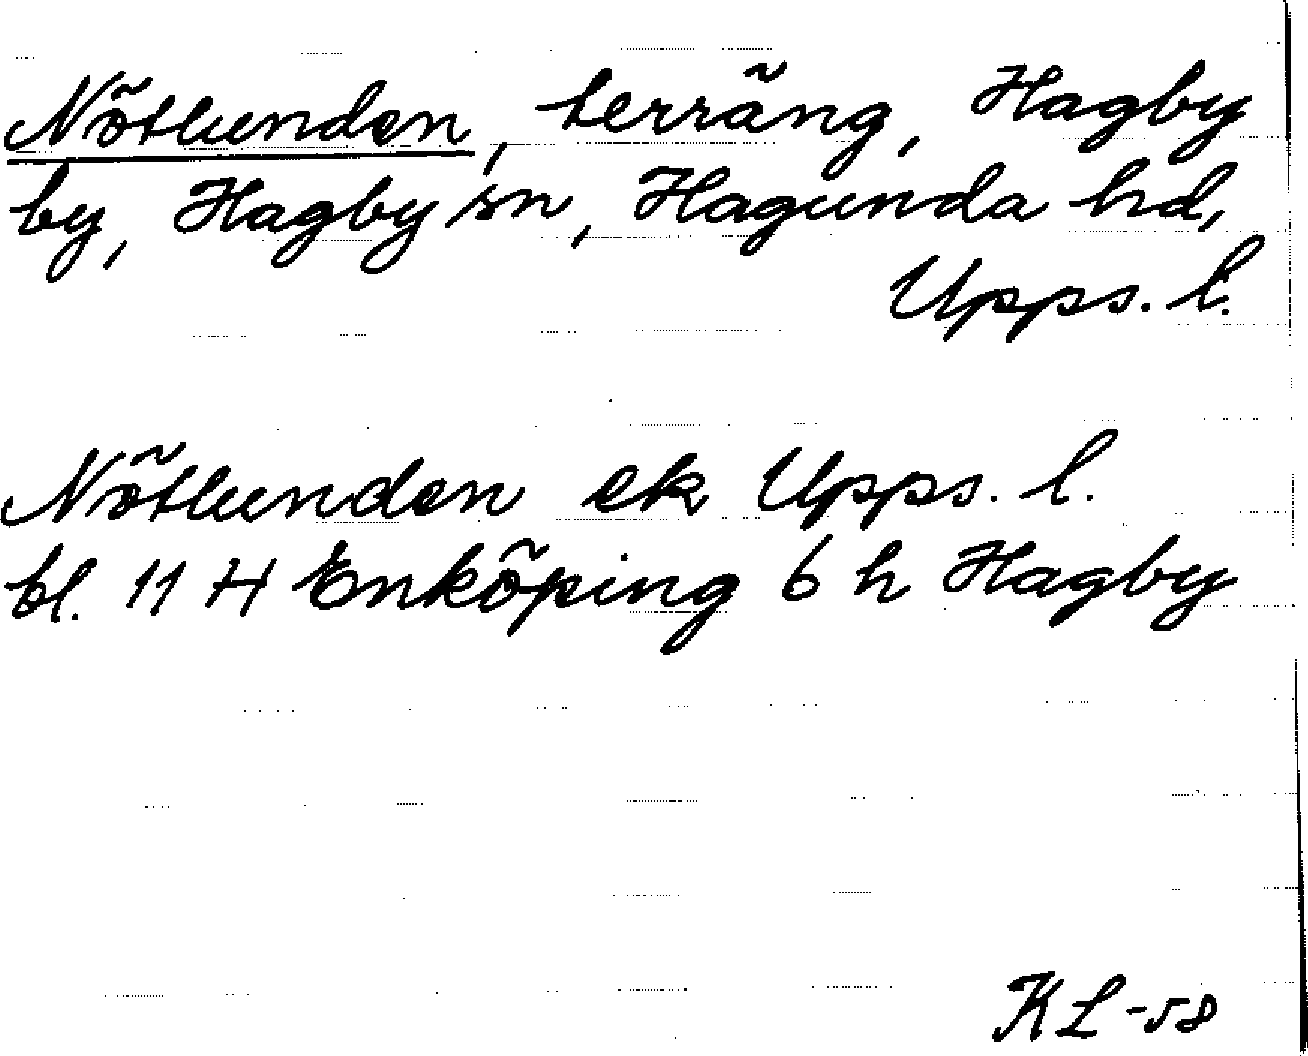 Nötlunden, terräng, Hagby
by, Hagby sn, Hagunda hd,
Upps. l.
Nötlunden ek Upps. l.
bl. 11 H Enköping 6 h Hagby
KL-58